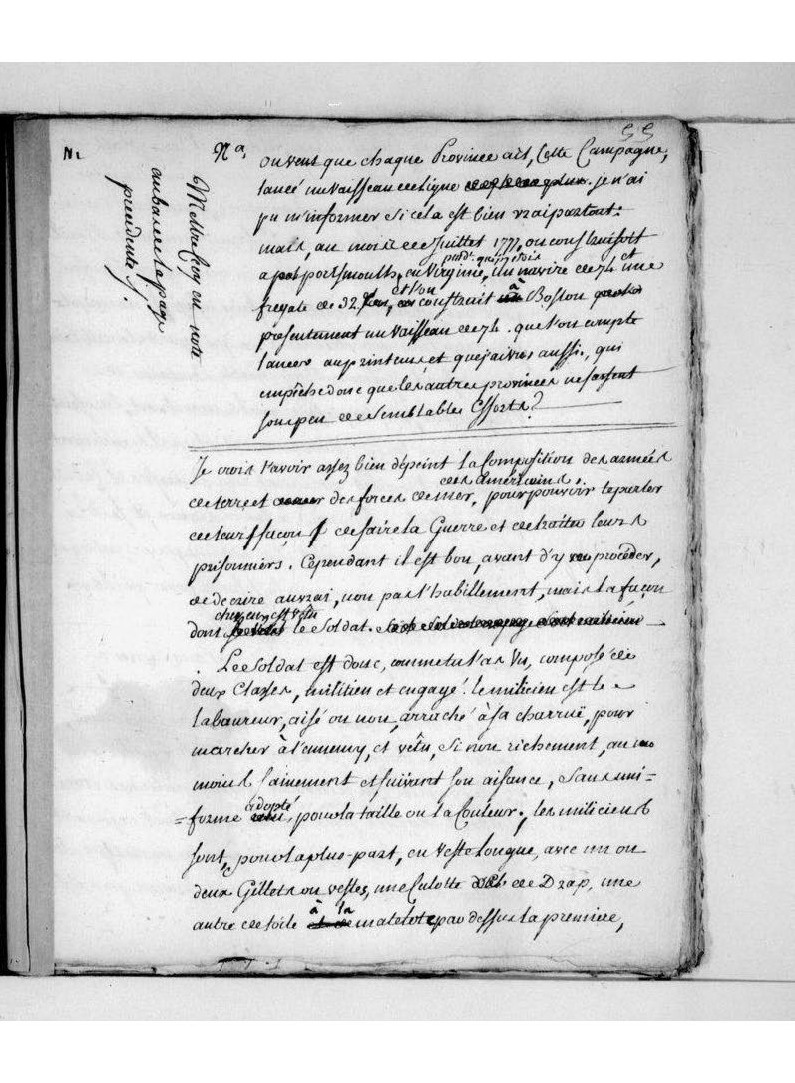 55
N.
Na,
on veut que chaque Province ait, Cette Campagne,
lancé un vaisseau de ligne je n'ai
pu m'informer si cela est bien vrai partout:
mais, au mois de Juillet 1777, on construisoit
a portsmouth, en Virginie, un navire de 74 et une
fregate de 32. et l'on construait à Boston
presentement un vaisseau de 74. que l'on compte
lancer au printems, et que j'ai vu aussi. qui
empêche donc que les autres provinces ne fassent
un peu de semblables Efforts?
Mettre Cecy en note
au bas de la page
precedente
Je crois t'avoir assez bien dépeint la Composition des armées
des americains.
de terre et des forces de mer, pour pouvoir te parler
de leur façon de faire la Guerre et de traiter leurs
prisonniers. Cependant il est bon, avant d'y procéder,
de decrire au vrai, non pas l'habillement, mais la façon
dont chez eux est vêtu le Soldat.
Le Soldat est donc, comme tu l'as Vu, composé de
deux Classes, militien et engagé. le milicien est le
laboureur, aisé ou non, arraché à sa charruë, pour
marcher à l'ennemy, et vêtu, si non richement, au
moins sainement et suivant son aisance, sans uni=
=forme adopté, pour la taille ou la Couleur; les miliciens
sont, pour la plus-part, en veste longue, avec un ou
deux Gillets ou vestes, une Culotte de Drap, une
autre de toile à la matelote par dessus la premiere,